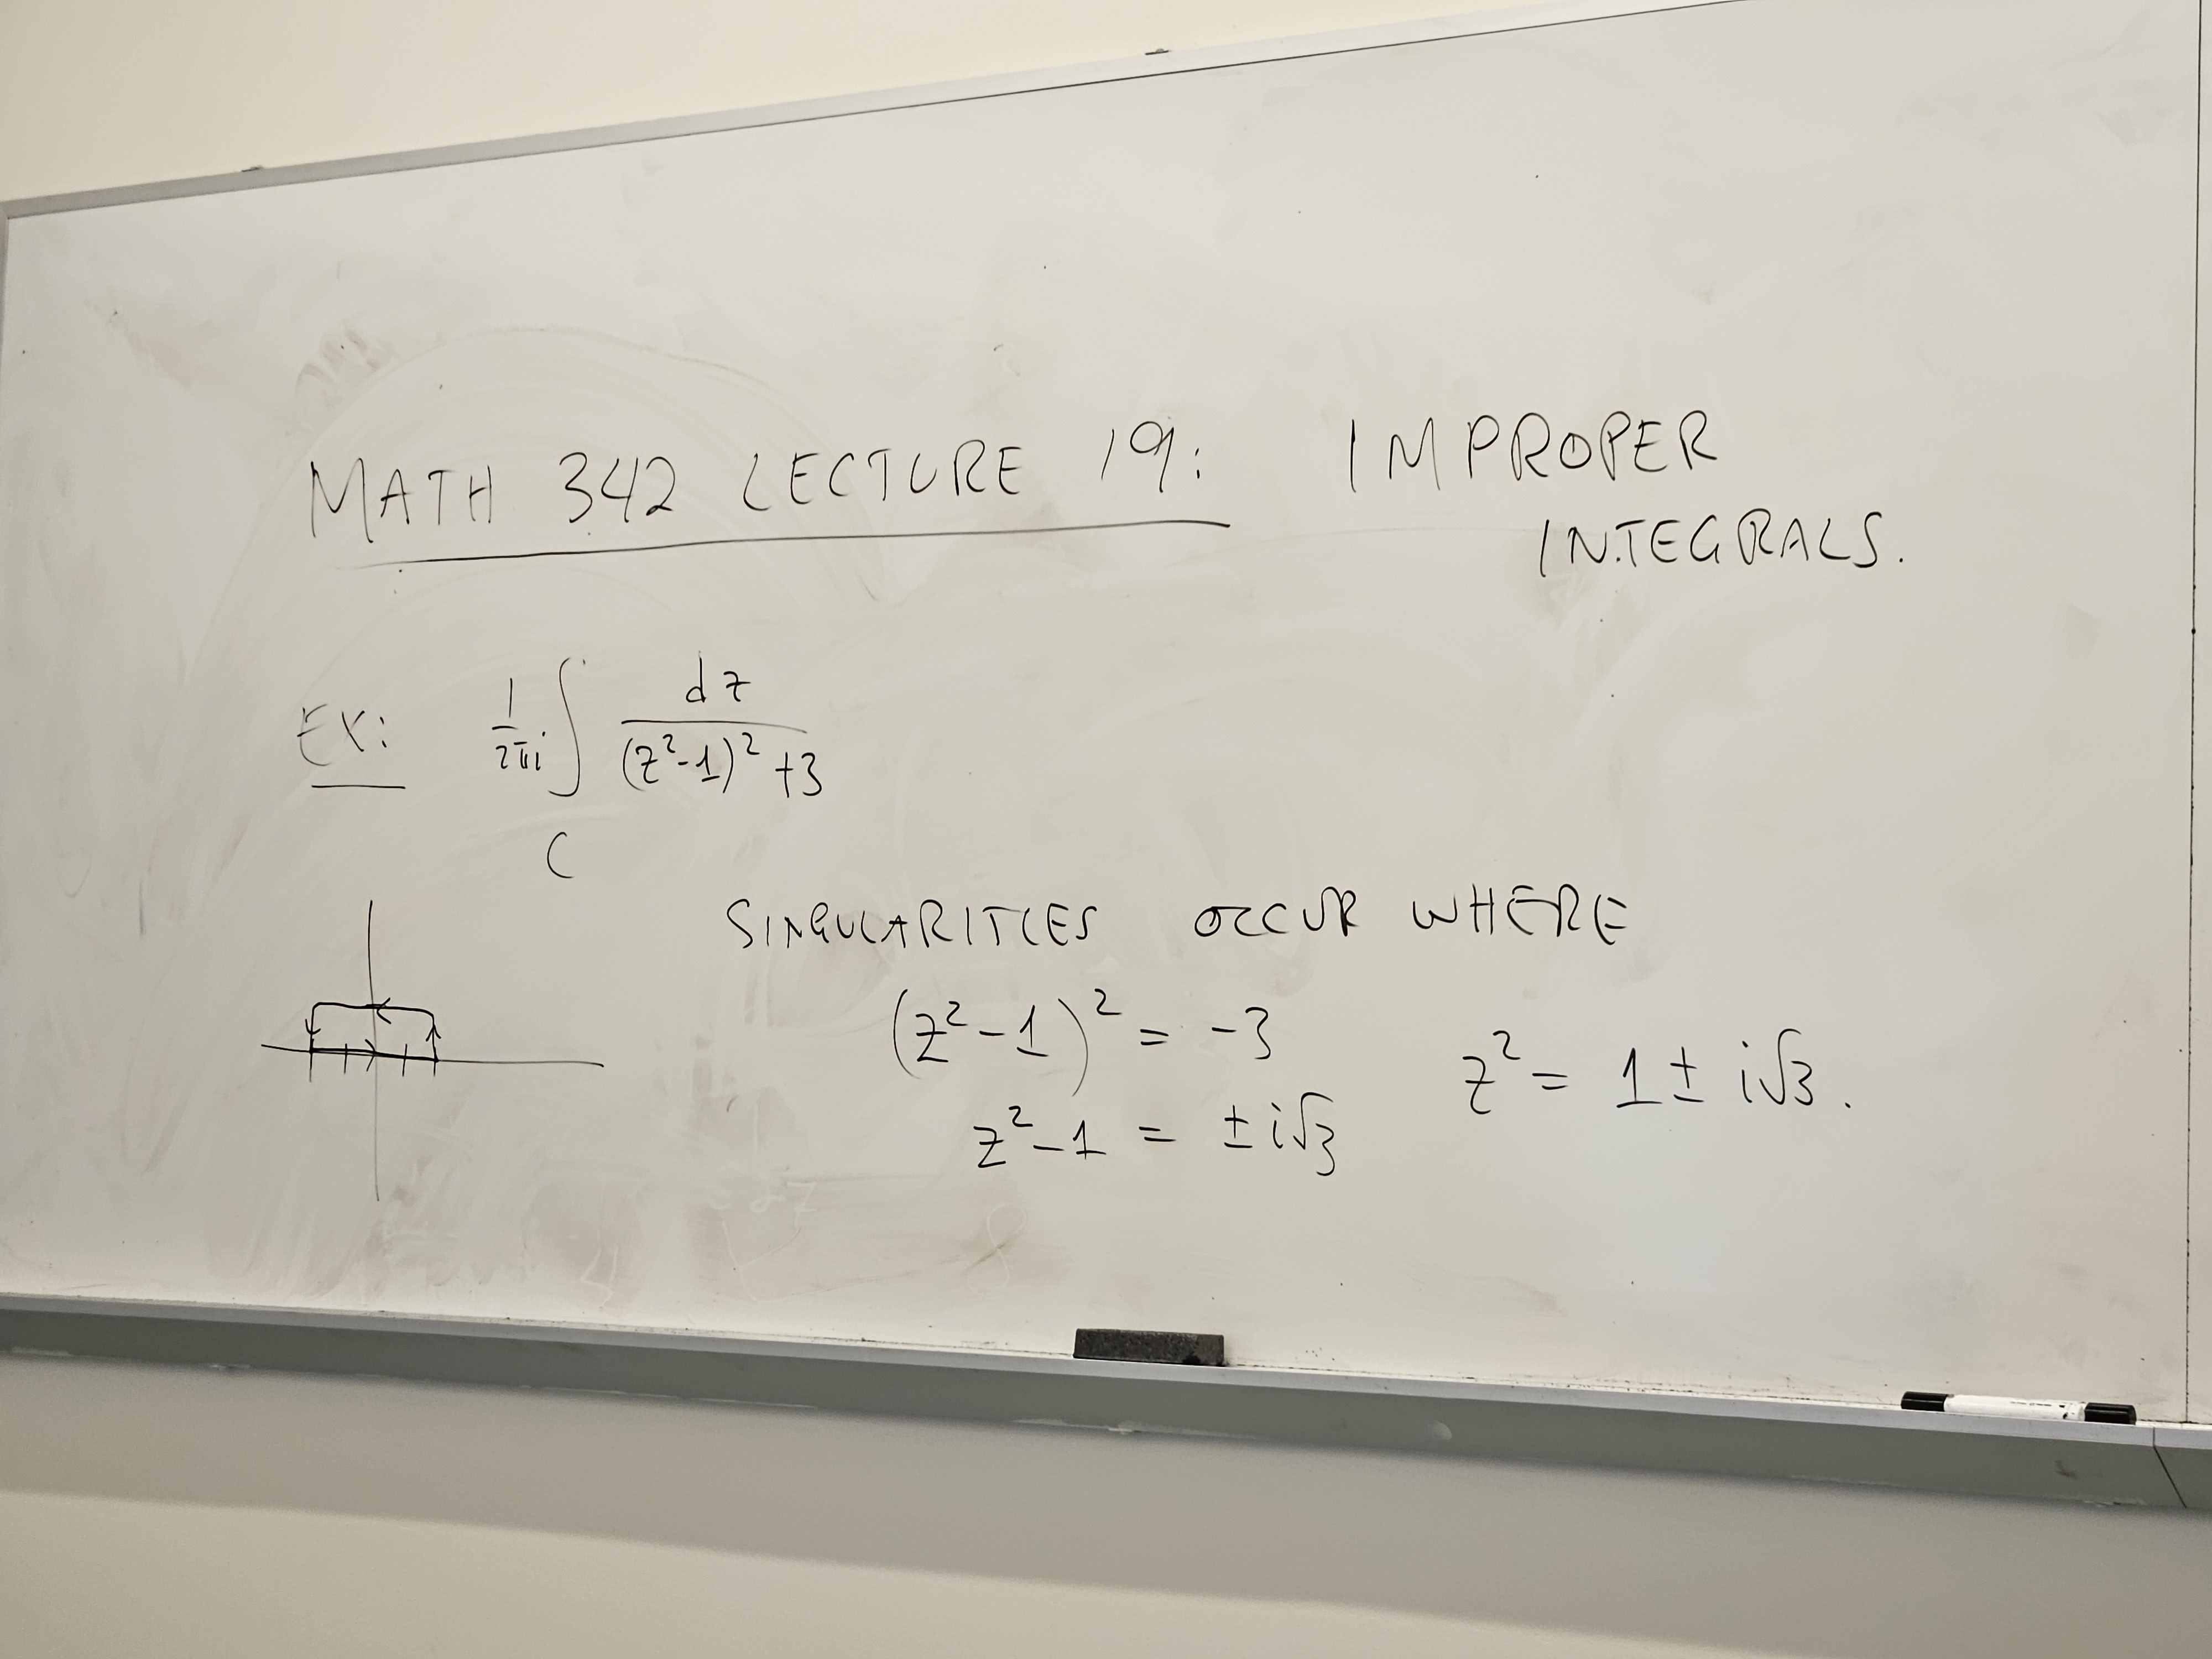 MATH 342 LECTURE 19: IMPROPER
INTEGRALS.
EX: 1/2πi ∫_C dz/((z²-1)²+3)
SINGULARITIES OCCUR WHERE
(z²-1)² = -3
z² = 1 ± i√3.
z²-1 = ± i√3